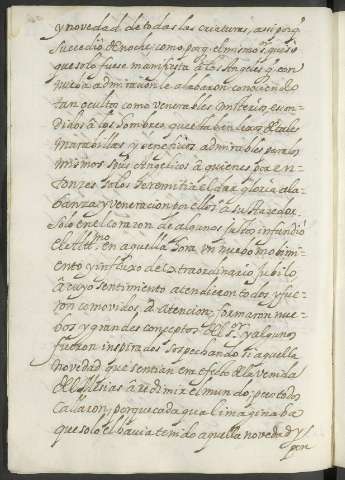 y novedad de todas las criaturas, assi porq̃
succedió de noche, como porq̃ el mismo Sr. quiso
que solo fuese manifiesta a los Angeles q̃ con
nueba admiracion le alabaron conociendo
tan ocultos como venerables Misterios escon-
didos â los hombres, que estaban lexos de tales
marabillas y beneficios admirables para los
mismos spiritus Angelicos â quienes por en-
tonzes solos se remitia el dar gloria ala-
banza y veneracion por ellos a su Hazedor.
Solo en el corazon de algunos justos infundió
el Altmo. en aquella hora, vn nuebo mobimi-
ento e ynfluxo de extraordinario jubilo
â cuyo sentimiento atendieron todos y fue-
ron comovidos â atencion, formaron nue-
bos y grandes conceptos del Sr. y algunos
fueron inspirados sospechando si aquella
novedad que sentian era efecto de la venida
del Mesias â redimir el mundo, pero todos
callaron, porque cada qual imaginaba
que solo el havia tenido aquella novedad y
pen